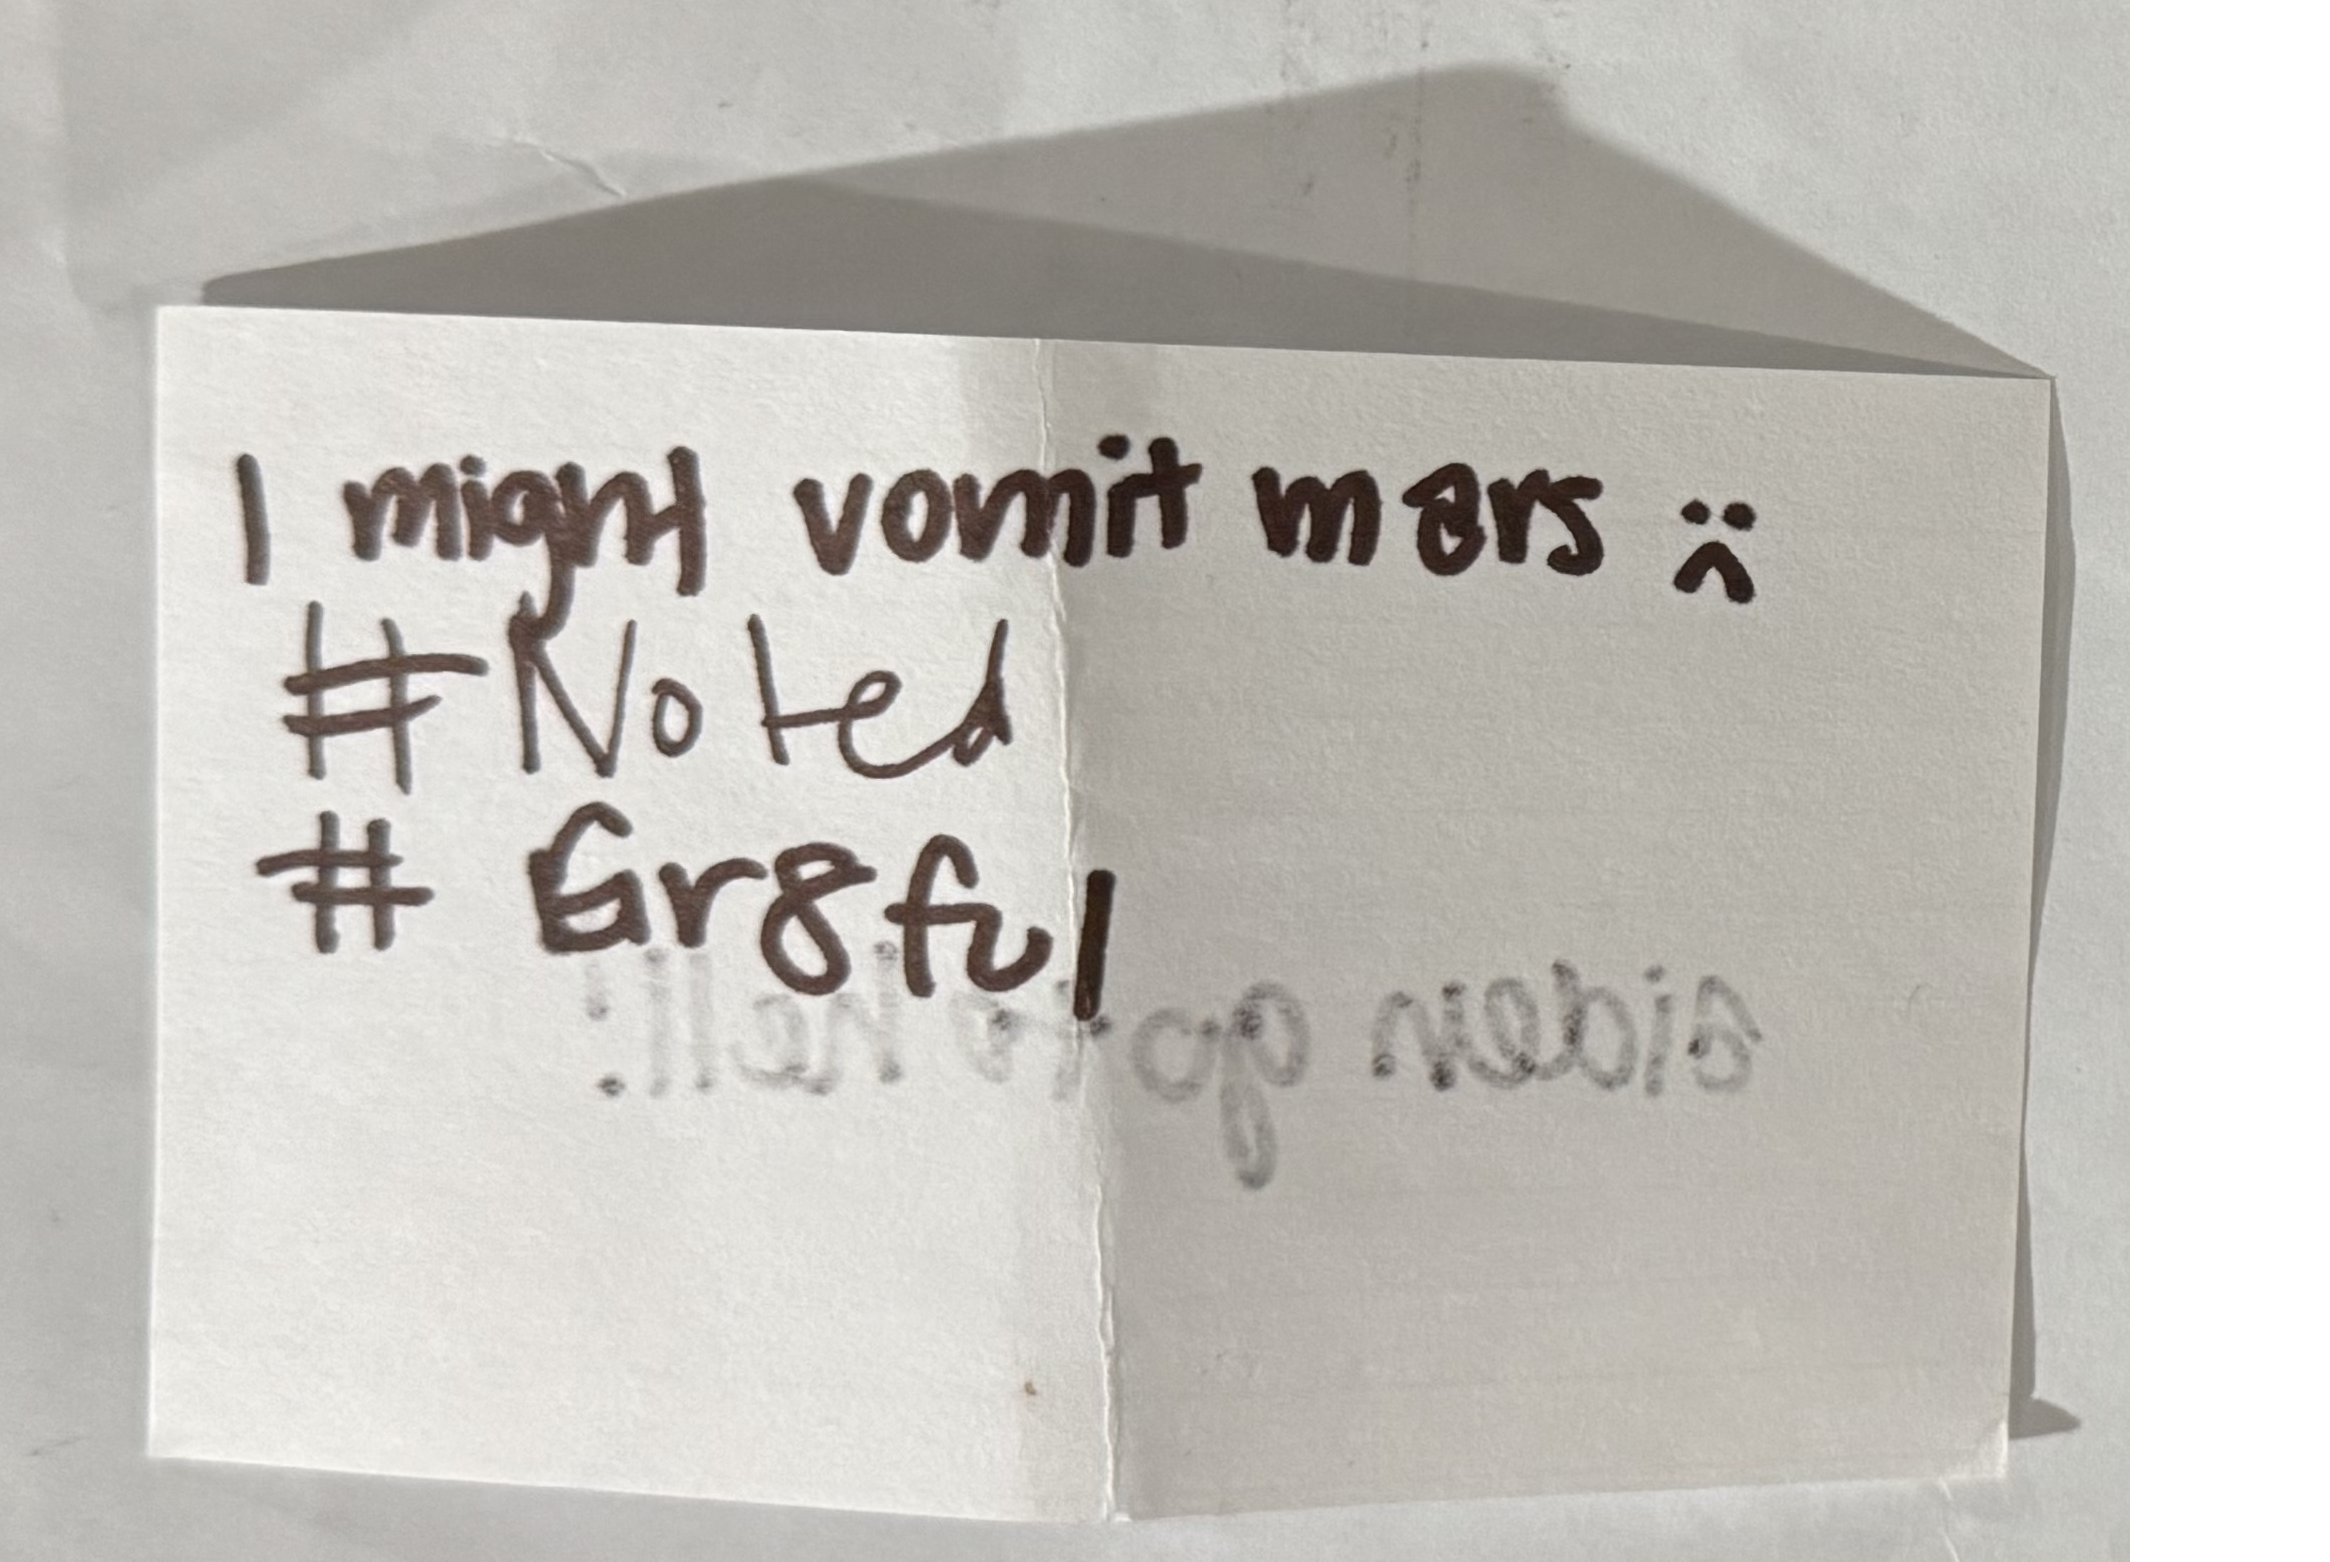 I might vomit mars :(
# Noted
# Gr8ful
aiden go to hell!